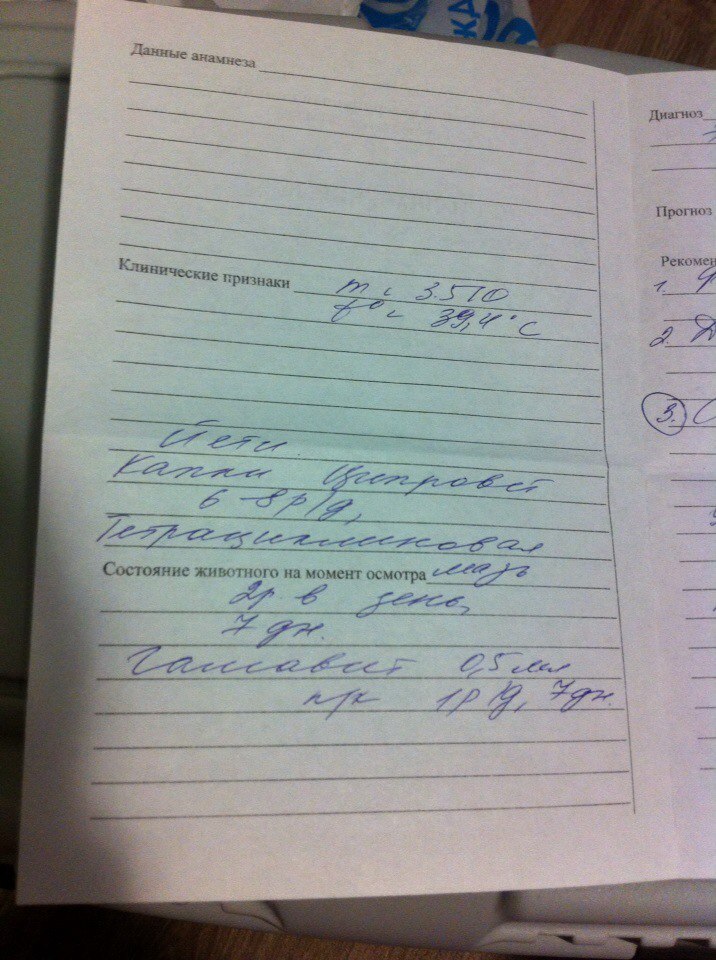 Данные анамнеза
Клинические признаки m = 3.510
t° = 39,4°C
Йети
Капли Ципровет
6-8 р/д,
Тетрациклиновая
Состояние животного на момент осмотра мазь
2р. в день,
7 дн.
Гамавит 0,5 мл
п/к 1р/д, 7дн.
Диагноз
Прогноз
Рекомен
1.
2.
3.